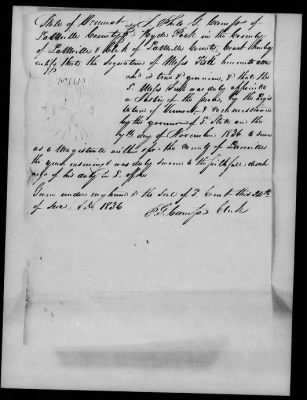 State of Vermont I, Philo G. Camp of
Lamoille County Hyde Park in the County
of Lamoille & Clerk of Lamoille County Court hereby
certify that the signature of Moses Fisk
is true & genuine, & that the
S. Moses Fisk was duly appointed
a Justice of the peace, by the Legis
lature of Vermont, &
by the governor of S. State on the
7th day of November 1836 to serve
as a Magistrate within & for the County of Lamoille
the year ensuing & was duly sworn to the faithfull disch
arge of his duty in S. office
Given under my hand & the Seal of S. Court this 24th
of Dec. A.D. 1836
P. G. Camp Clerk